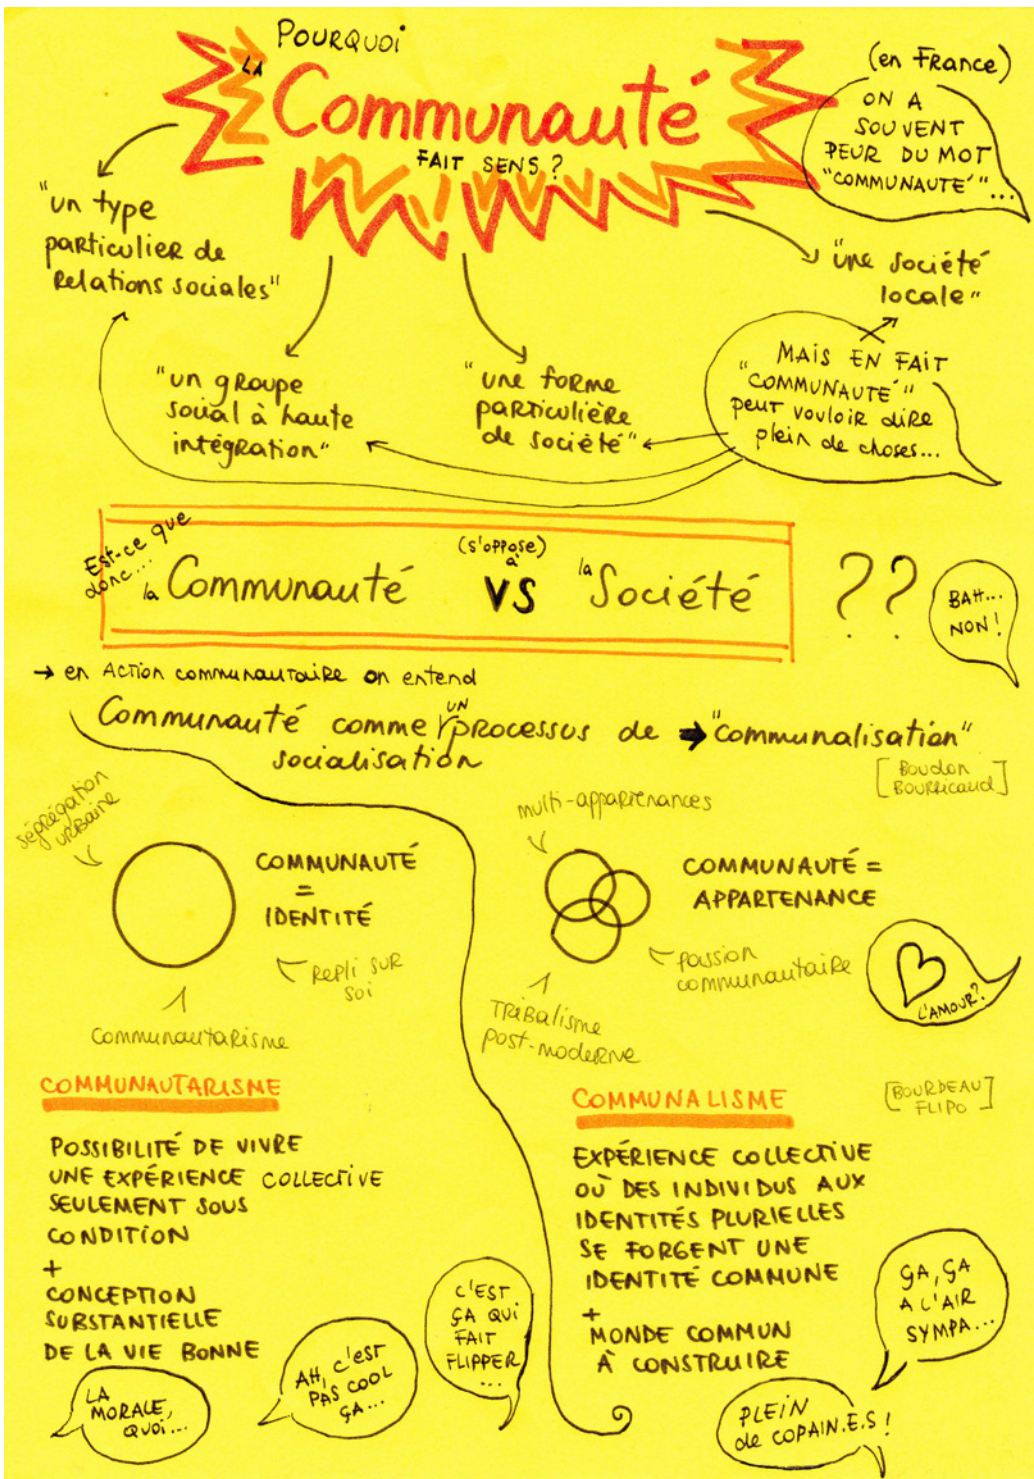 POURQUOI
LA
Communauté
FAIT SENS ?
(en France)
ON A
SOUVENT
PEUR DU MOT
"COMMUNAUTÉ"...
"un type
particulier de
relations sociales"
"une société
locale"
"un groupe
social à haute
intégration"
"une forme
particulière
de société"
MAIS EN FAIT
"COMMUNAUTÉ"
peut vouloir dire
plein de choses...
Est-ce que
donc...
la Communauté
(s'oppose)
à
VS
la Société
??
BAH...
NON!
→ en Action communautaire on entend
Communauté comme UN processus de → "communalisation"
socialisation
[Boudon
Bourricaud]
ségrégation
urbaine
COMMUNAUTÉ
=
IDENTITÉ
repli sur
soi
Communautarisme
multi-appartenances
COMMUNAUTÉ =
APPARTENANCE
passion
communautaire
L'AMOUR?
Tribalisme
post-moderne
COMMUNAUTARISME
POSSIBILITÉ DE VIVRE
UNE EXPÉRIENCE COLLECTIVE
SEULEMENT SOUS
CONDITION
+
CONCEPTION
SUBSTANTIELLE
DE LA VIE BONNE
LA
MORALE,
QUOI...
AH, c'est
PAS COOL
ÇA...
C'EST
ÇA QUI
FAIT
FLIPPER
...
COMMUNALISME
[BOURDEAU
FLIPO]
EXPÉRIENCE COLLECTIVE
OÙ DES INDIVIDUS AUX
IDENTITÉS PLURIELLES
SE FORGENT UNE
IDENTITÉ COMMUNE
+
MONDE COMMUN
À CONSTRUIRE
ÇA, ÇA
A L'AIR
SYMPA...
PLEIN
de COPAIN.E.S !